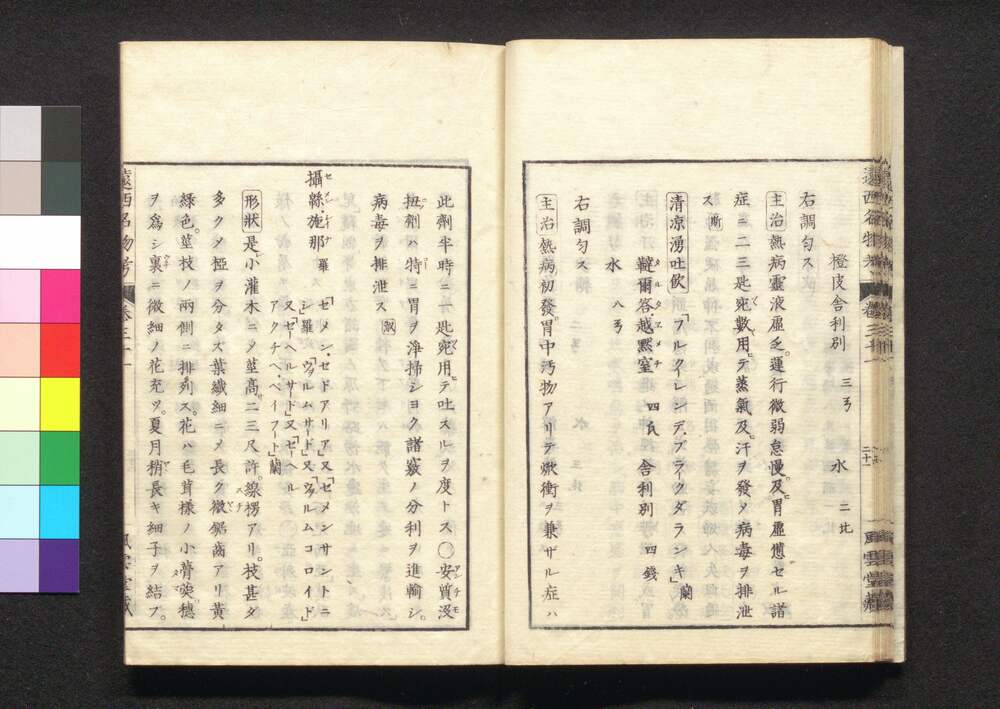 橙皮舎利別 三弓 水 二比
右調匀ス
主治 熱病靈液虚乏。運行微弱怠慢。及ヒ胃虚憊セル諸
症ニ二三匙宛數用テ蒸氣及ヒ汗ヲ發メ病毒ヲ排泄
ス
清凉湧吐飲 「フルクーレンデブラークダランキ」蘭
韃爾答越黙室 四氏 舎利別 四錢
水 八弓
右調匀ス
主治 熱病初發。胃中汚物アリテ焮衝ヲ兼ザル症ハ
此劑半時ニ一匙宛用テ吐スルヲ度トス〇安質没
扭劑ハ特ニ胃ヲ浄掃シヨク諸竅ノ分利ヲ進輸シ。
病毒ヲ排泄ス
攝綿施那 羅 「ゼメン・セドアリア」又「セメンサントニ
シ」羅「ヴァルムサド」又「ヴァルムコロイド」
又「ゼーヘルサード」又「ゼーヘル
アクチヘ・ベイフート」蘭
形狀 是小灌木ニメ莖高二三尺許。線楞アリ。枝甚タ
多クメ椏ヲ分タス葉纎細ニメ長ク微鋸齒アリ黄
緑色。莖枝ノ兩側ニ排列ス。花ハ毛茸様ノ小膏葖。穂
ヲ為シ裏ニ微細ノ花充ツ。夏月稍長キ細子ヲ結フ。
遠西名物考 巻三十一
風雲堂蔵